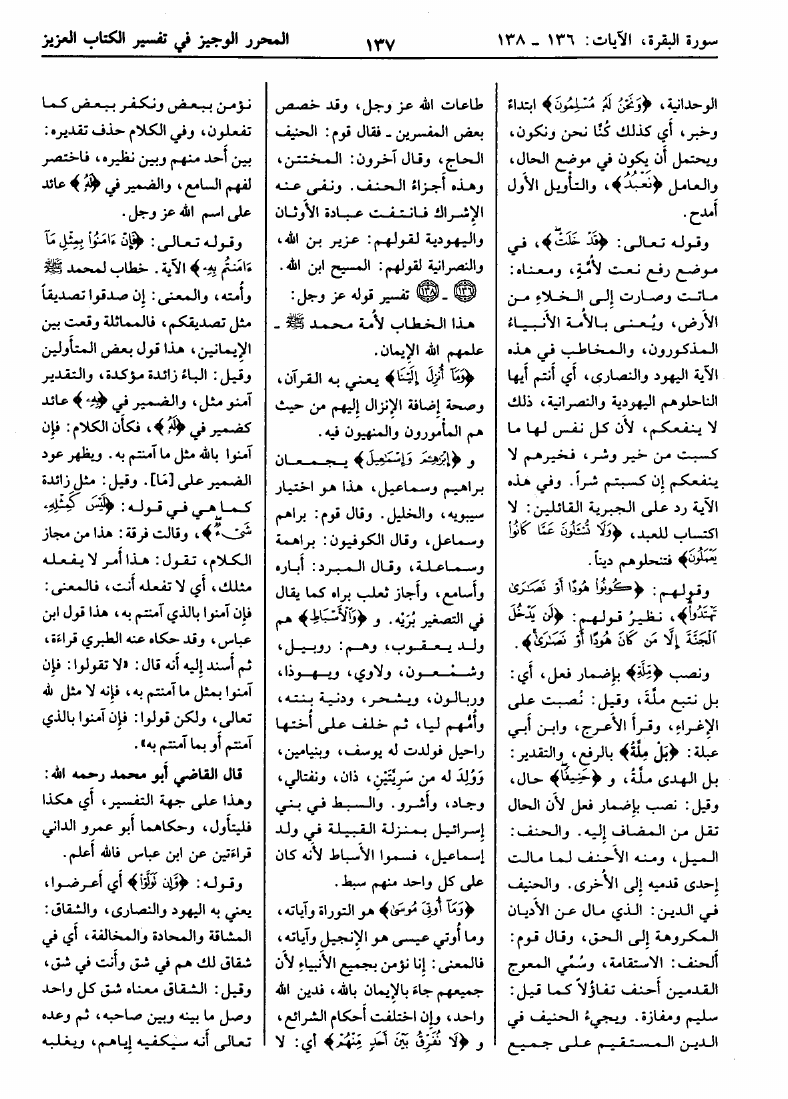 سورة البقرة، الآيات: ١٣٦ ـ ١٣٨
١٣٧
المحرر الوجيز في تفسير الكتاب العزيز
الوحدانية، ﴿وَنَحْنُ لَهُ مُسْلِمُونَ﴾ ابتداءٌ
وخبر، أي كذلك كُنَّا نحن ونكون،
ويحتمل أن يكون في موضع الحال،
والعامل ﴿نَعْبُدُ﴾، والتأويل الأول
أمدح.
وقوله تعالى: ﴿قَدْ خَلَتْ﴾، في
موضع رفع نعت لأُمَّةٍ، ومعناه:
ماتت وصارت إلى الخلاءِ من
الأرض، ويُعنى بالأمة الأنبياءُ
المذكورون، والمخاطب في هذه
الآية اليهود والنصارى، أي أنتم أيها
الناحلوهم اليهودية والنصرانية، ذلك
لا ينفعكم، لأن كل نفس لها ما
كسبت من خير وشر، فخيرهم لا
ينفعكم إن كسبتم شراً. وفي هذه
الآية رد على الجبرية القائلين: لا
اكتساب للعبد، ﴿وَلَا تُسْئَلُونَ عَمَّا كَانُوا
يَعْمَلُونَ﴾ فتنحلوهم ديناً.
وقولهم: ﴿كُونُوا هُودًا أَوْ نَصَـٰرَىٰ
تَهْتَدُوا﴾، نظيرُ قولهم: ﴿لَن يَدْخُلَ
ٱلْجَنَّةَ إِلَّا مَن كَانَ هُودًا أَوْ نَصَـٰرَىٰ﴾.
ونصب ﴿مِلَّةَ﴾ بإضمار فعل، أي:
بل نتبع ملَّةَ، وقيل: نُصبت على
الإغراءِ، وقرأ الأعرج، وابن أبي
عبلة: ﴿بَلْ مِلَّةُ﴾ بالرفع، والتقدير:
بل الهدى ملَّةُ، و ﴿حَنِيفًا﴾ حال،
وقيل: نصب بإضمار فعل لأن الحال
تقل من المضاف إليه. والحنف:
الميل، ومنه الأحنف لما مالت
إحدى قدميه إلى الأخرى. والحنيف
في الدين: الذي مال عن الأديان
المكروهة إلى الحق، وقال قوم:
ألحنف: الاستقامة، وسُمِّي المعوج
القدمين أحنف تفاؤلاً كما قيل:
سليم ومفازة. ويجيءُ الحنيف في
الدين المستقيم على جميع
طاعات الله عز وجل، وقد خصص
بعض المفسرين ـ فقال قوم: الحنيف
الحاج، وقال آخرون: المختتن،
وهذه أجزاءُ الحنف. ونفى عنه
الإشراك فانتفت عبادة الأوثان
واليهودية لقولهم: عزير بن الله،
والنصرانية لقولهم: المسيح ابن الله.
﴿١٣٦﴾ ـ ﴿١٣٨﴾ تفسير قوله عز وجل:
هذا الخطاب لأمة محمد ﷺ ـ
علمهم الله الإيمان.
﴿وَمَآ أُنزِلَ إِلَيْنَا﴾ يعني به القرآن،
وصحة إضافة الإنزال إليهم من حيث
هم المأمورون والمنهيون فيه.
و ﴿إِبْرَٰهِـۧمَ وَإِسْمَـٰعِيلَ﴾ يجمعان
براهيم وسماعيل، هذا هو اختيار
سيبويه، والخليل. وقال قوم: براهم
وسماعل، وقال الكوفيون: براهمة
وسماعلة، وقال المبرد: أباره
وأسامع، وأجاز ثعلب براه كما يقال
في التصغير بُرَيْه. و ﴿وَٱلْأَسْبَاطِ﴾ هم
ولد يعقوب، وهم: روبيل،
وشمعون، ولاوي، ويهوذا،
وربالون، ويشحر، ودنية بنته،
وأمُّهم ليا، ثم خلف على أختها
راحيل فولدت له يوسف، وبنيامين،
وَوُلِدَ له من سَرِيَّتَيْنِ، ذان، ونفتالي،
وجاد، وأشرو. والسبط في بني
إسرائيل بمنزلة القبيلة في ولد
إسماعيل، فسموا الأسباط لأنه كان
على كل واحد منهم سبط.
﴿وَمَآ أُوتِىَ مُوسَىٰ﴾ هو التوراة وآياته،
وما أوتي عيسى هو الإنجيل وآياته،
فالمعنى: إنا نؤمن بجميع الأنبياءِ لأن
جميعهم جاءَ بالإيمان بالله، فدين الله
واحد، وإن اختلفت أحكام الشرائع،
و ﴿لَا نُفَرِّقُ بَيْنَ أَحَدٍ مِّنْهُمْ﴾ أي: لا
نؤمن ببعض ونكفر ببعض كما
تفعلون، وفي الكلام حذف تقديره:
بين أحد منهم وبين نظيره، فاختصر
لفهم السامع، والضمير في ﴿لَهُ﴾ عائد
على اسم الله عز وجل.
وقوله تعالى: ﴿فَإِنْ ءَامَنُوا بِمِثْلِ مَآ
ءَامَنتُم بِهِۦ﴾ الآية. خطاب لمحمد ﷺ
وأمته، والمعنى: إن صدقوا تصديقاً
مثل تصديقكم، فالمماثلة وقعت بين
الإيمانين، هذا قول بعض المتأولين
وقيل: الباءُ زائدة مؤكدة، والتقدير
آمنو مثل، والضمير في ﴿بِهِۦ﴾ عائد
كضمير في ﴿لَهُ﴾، فكأن الكلام: فإن
آمنوا بالله مثل ما آمنتم به. ويظهر عود
الضمير على [مَا]. وقيل: مثل زائدة
كما هي في قوله: ﴿لَيْسَ كَمِثْلِهِۦ
شَىْءٌ﴾، وقالت فرقة: هذا من مجاز
الكلام، تقول: هذا أمر لا يفعله
مثلك، أي لا تفعله أنت، فالمعنى:
فإن آمنوا بالذي آمنتم به، هذا قول ابن
عباس، وقد حكاه عنه الطبري قراءَة،
ثم أسند إليه أنه قال: «لا تقولوا: فإن
آمنوا بمثل ما آمنتم به، فإنه لا مثل لله
تعالى، ولكن قولوا: فإن آمنوا بالذي
آمنتم أو بما آمنتم به».
قال القاضي أبو محمد رحمه الله:
وهذا على جهة التفسير، أي هكذا
فليتأول، وحكاهما أبو عمرو الداني
قراءَتين عن ابن عباس فالله أعلم.
وقوله: ﴿وَّإِن تَوَلَّوْا﴾ أي أعرضوا،
يعني به اليهود والنصارى، والشقاق:
المشاقة والمحادة والمخالفة، أي في
شقاق لك هم في شق وأنت في شق،
وقيل: الشقاق معناه شق كل واحد
وصل ما بينه وبين صاحبه، ثم وعده
تعالى أنه سيكفيه إياهم، ويغلبه